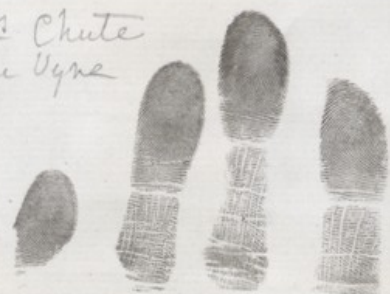 Chute
Vyne